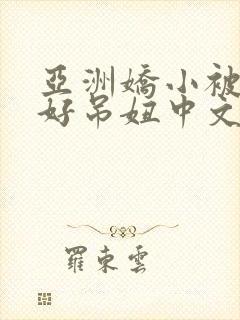 亞洲嬌小被
好吊妞中文
羅東雲